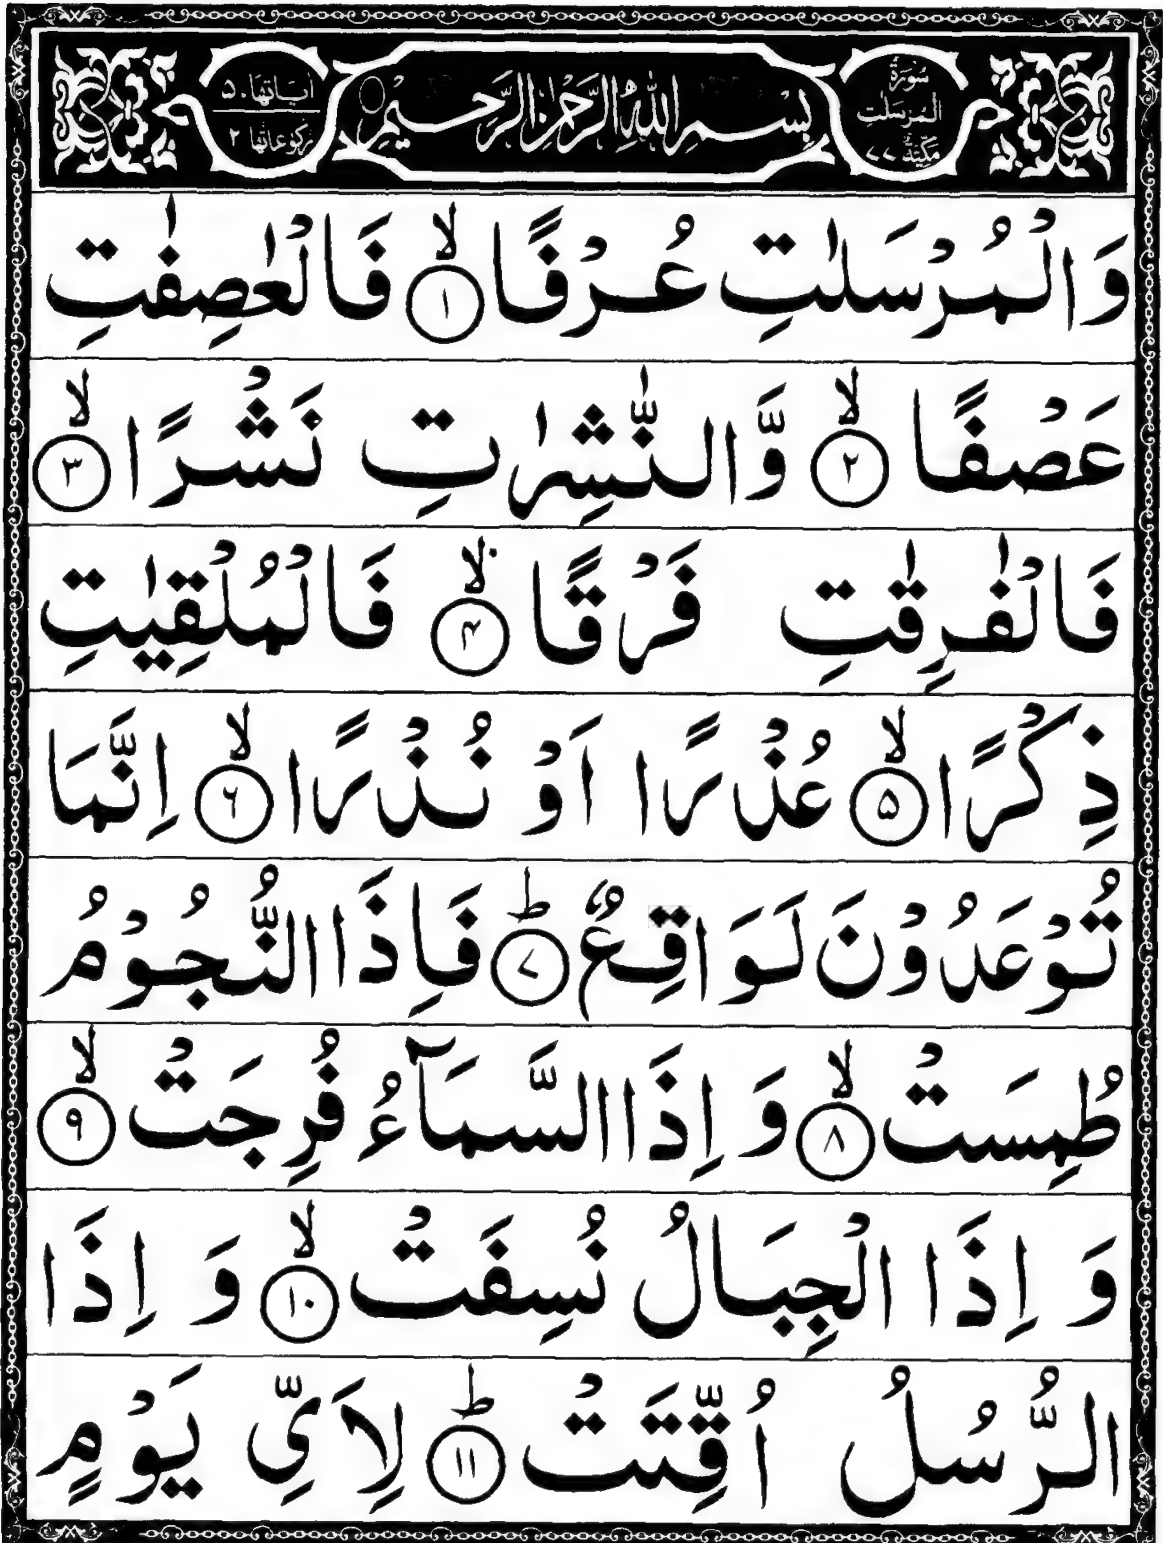 سُوْرَةُ
الْمُرْسَلٰتِ
مَكِّيَّةٌ ٧٧
بِسْمِ اللّٰهِ الرَّحْمٰنِ الرَّحِيْمِ
اٰيَاتُهَا ٥٠
رُكُوْعَاتُهَا ٢
وَالْمُرْسَلٰتِ عُرْفًا ۙ﴿١﴾ فَالْعٰصِفٰتِ
عَصْفًا ۙ﴿٢﴾ وَّالنّٰشِرٰتِ نَشْرًا ۙ﴿٣﴾
فَالْفٰرِقٰتِ فَرْقًا ۙ﴿٤﴾ فَالْمُلْقِيٰتِ
ذِكْرًا ۙ﴿٥﴾ عُذْرًا اَوْ نُذْرًا ۙ﴿٦﴾ اِنَّمَا
تُوْعَدُوْنَ لَوَاقِعٌ ؕ﴿٧﴾ فَاِذَا النُّجُوْمُ
طُمِسَتْ ۙ﴿٨﴾ وَ اِذَا السَّمَآءُ فُرِجَتْ ۙ﴿٩﴾
وَ اِذَا الْجِبَالُ نُسِفَتْ ۙ﴿١٠﴾ وَ اِذَا
الرُّسُلُ اُقِّتَتْ ؕ﴿١١﴾ لِاَيِّ يَوْمٍ